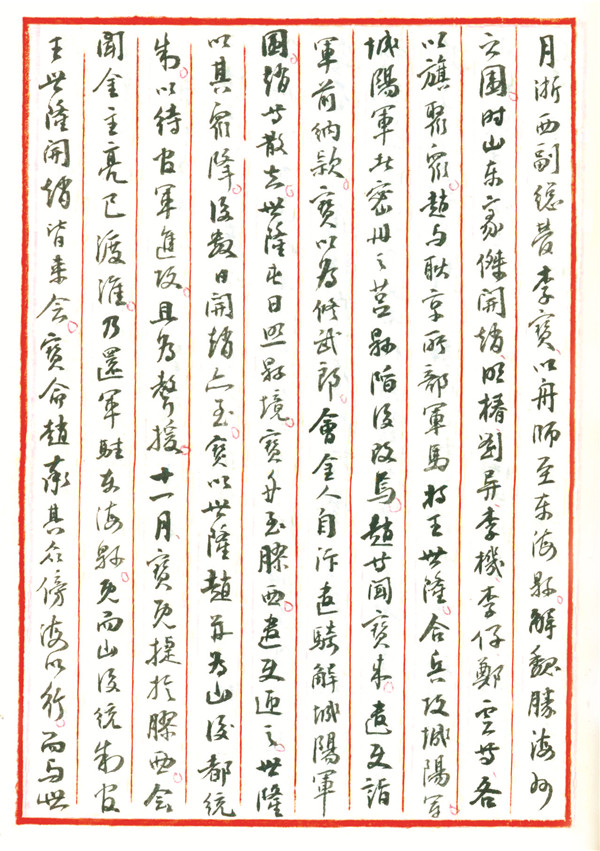 月浙西副總管李寶以舟師至东海縣解魏勝海州
之圍时山东豪傑開趙明椿劉异李機李仔鄭雲等各
以旗聚眾趙与耿京所部軍馬將王世隆合兵攻城陽軍
城陽軍者密州之莒縣陷後改焉趙等聞寶来遣使詣
軍前納款寶以為修武郎會金人自汴遣騎解城陽軍
圍趙等散去世隆屯日照縣境寶舟至膠西遣使迎之世隆
以其眾降後數日開趙亦至寶以世隆趙并為山後都統
制以待官軍進攻且為聲援十一月寶既捷於膠西会
聞金主亮已渡淮乃還軍駐东海縣既而山後統制官
王世隆開趙皆来会寶命趙率其众傍海以行而与世